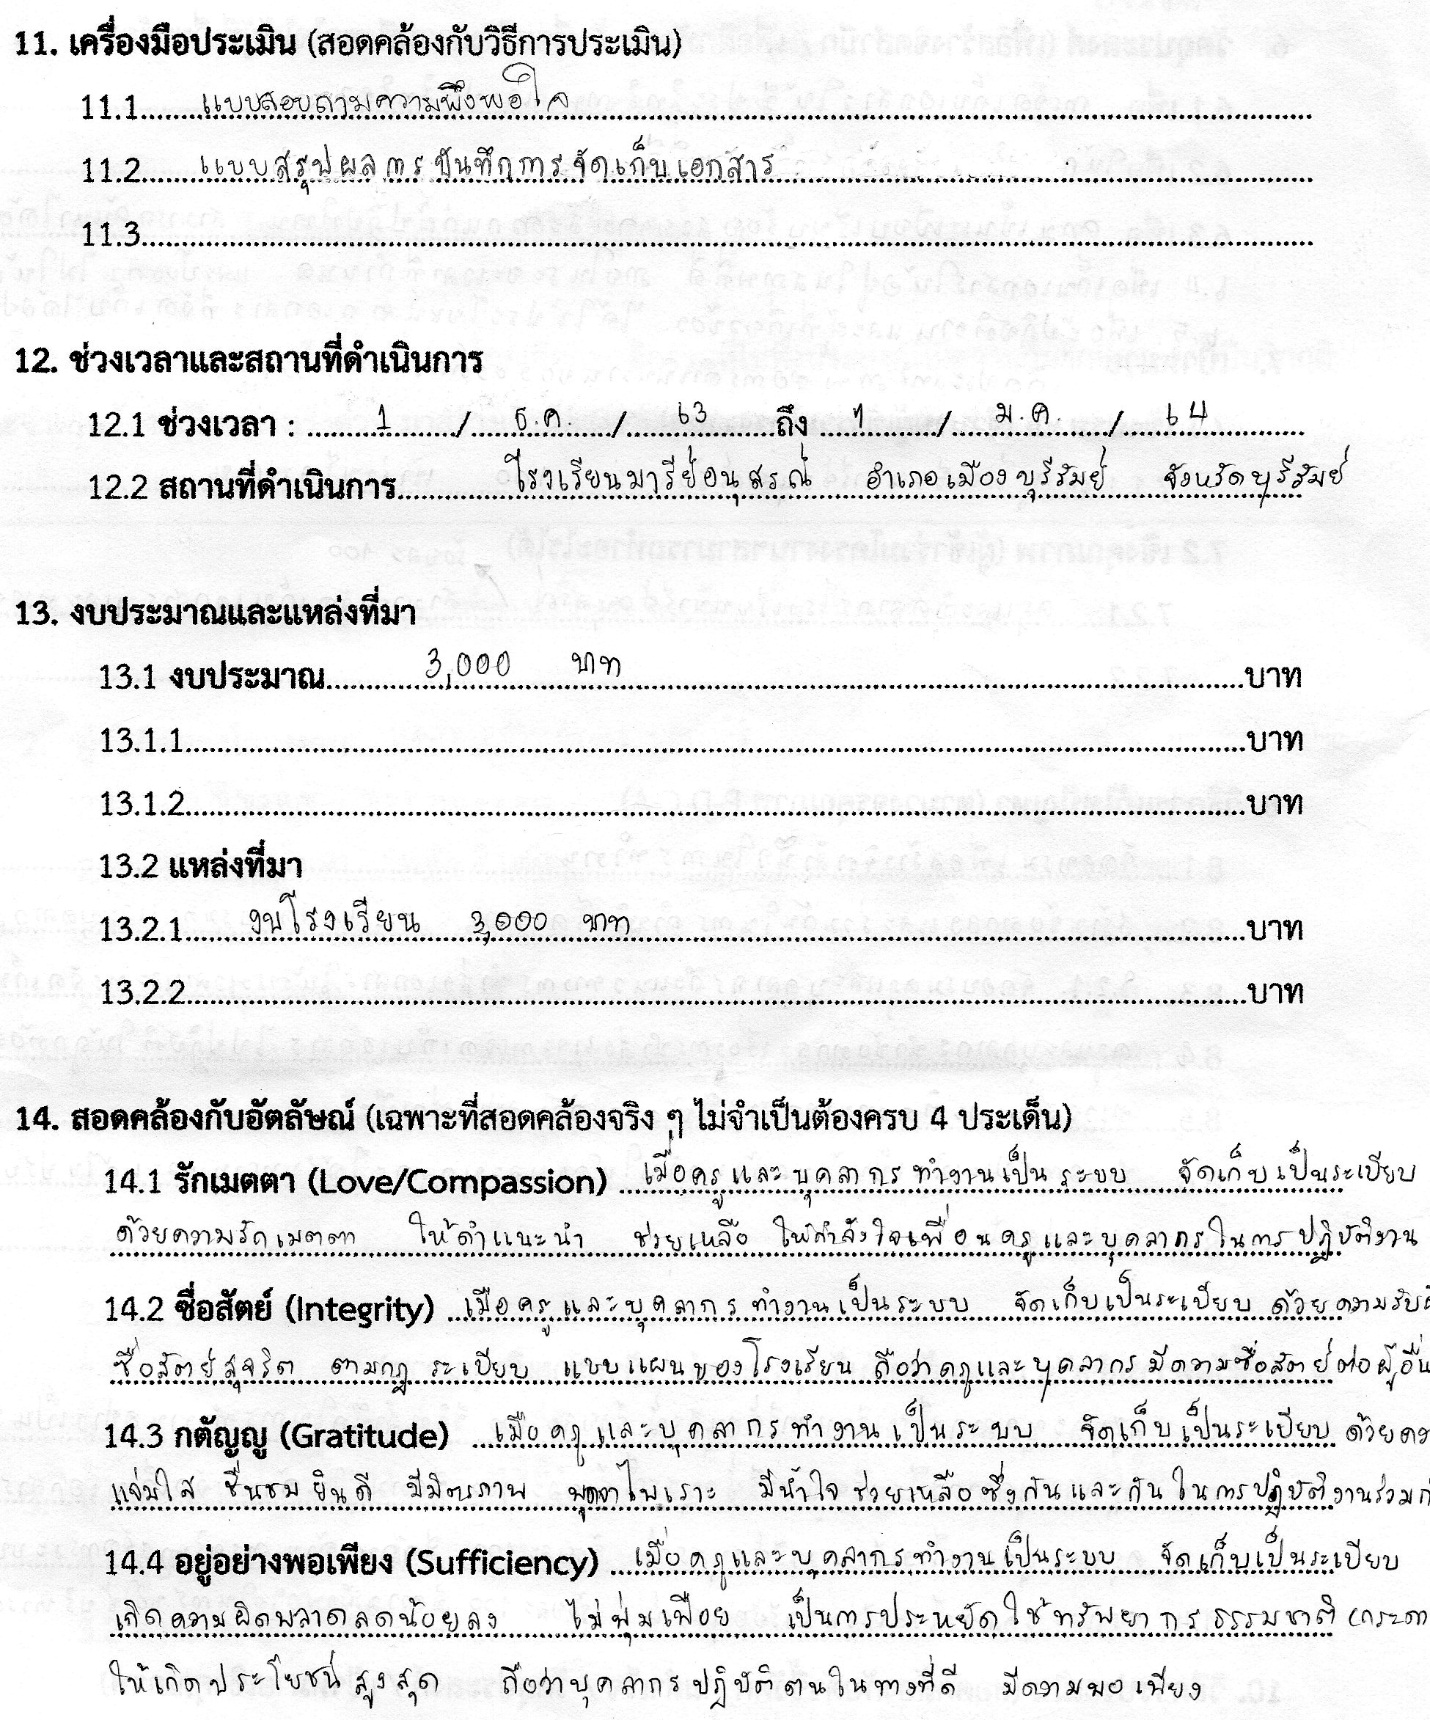 11. เครื่องมือประเมิน (สอดคล้องกับวิธีการประเมิน)
11.1 แบบสอบถามความพึงพอใจ
11.2 แบบสรุปผลการบันทึกการจัดเก็บเอกสาร
11.3
12. ช่วงเวลาและสถานที่ดำเนินการ
12.1 ช่วงเวลา : 1 / ธ.ค. / 63 ถึง 1 / ม.ค. / 64
12.2 สถานที่ดำเนินการ โรงเรียนมารีย์อนุสรณ์ อำเภอเมืองบุรีรัมย์ จังหวัดบุรีรัมย์
13. งบประมาณและแหล่งที่มา
13.1 งบประมาณ 3,000 บาท บาท
13.1.1 บาท
13.1.2 บาท
13.2 แหล่งที่มา
13.2.1 งบโรงเรียน 3,000 บาท บาท
13.2.2 บาท
14. สอดคล้องกับอัตลัษณ์ (เฉพาะที่สอดคล้องจริง ๆ ไม่จำเป็นต้องครบ 4 ประเด็น)
14.1 รักเมตตา (Love/Compassion) เมื่อครูและบุคลากรทำงานเป็นระบบ จัดเก็บเป็นระเบียบ
ด้วยความรักเมตตา ให้คำแนะนำ ช่วยเหลือ ให้กำลังใจเพื่อนครูและบุคลากรในการปฏิบัติงาน
14.2 ซื่อสัตย์ (Integrity) เมื่อครูและบุคลากรทำงานเป็นระบบ จัดเก็บเป็นระเบียบ ด้วยความรับ
ซื่อสัตย์สุจริต ตามกฎ ระเบียบ แบบแผนของโรงเรียน ถือว่าครูและบุคลากรมีความซื่อสัตย์ต่อผู้อื่น
14.3 กตัญญู (Gratitude) เมื่อครูและบุคลากรทำงานเป็นระบบ จัดเก็บเป็นระเบียบ ด้วยคว
แจ่มใส ชื่นชมยินดี มีมิตรภาพ พูดจาไพเราะ มีน้ำใจช่วยเหลือซึ่งกันและกันในการปฏิบัติงานร่วมก
14.4 อยู่อย่างพอเพียง (Sufficiency) เมื่อครูและบุคลากรทำงานเป็นระบบ จัดเก็บเป็นระเบียบ
เกิดความผิดพลาดลดน้อยลง ไม่ฟุ่มเฟือย เป็นการประหยัดใช้ทรัพยากรธรรมชาติ (กระดา
ให้เกิดประโยชน์สูงสุด ถือว่าบุคลากรปฏิบัติตนในทางที่ดี มีความพอเพียง